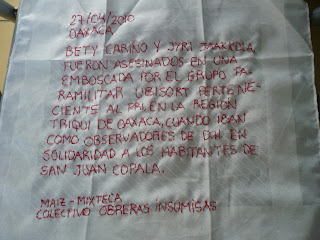 27/04/2010
OAXACA
BETY CARIÑO Y JYRI JAAKKOLA,
FUERON ASESINADOS EN UNA
EMBOSCADA POR EL GRUPO PA-
RAMILITAR UBISORT PERTENE-
CIENTE AL PRI EN LA REGION
TRIQUI DE OAXACA, CUANDO IBAN
COMO OBSERVADORES DE DH EN
SOLIDARIDAD A LOS HABITANTES DE
SAN JUAN COPALA.
MAIZ-MIXTECA
COLECTIVO OBRERAS INSUMISAS